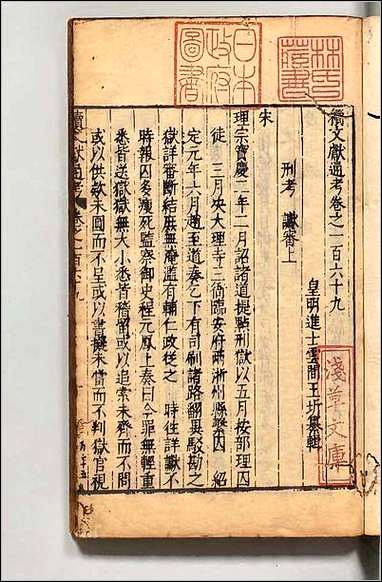 續文獻通考卷之一百六十九
皇明進士雲間王圻纂輯
刑考 讞審上
宋
理宗寶慶二年二月詔諸道提點刑獄以五月按部理囚
徒 三月決大理寺三衙臨安府兩浙州縣繫囚 紹
定元年六月趙至道奏乞下有司制諸路翻異駁勘之
獄詳審斷結庶無淹濫有輔仁政從之 時往詳讞不
時報囚多瘐死監察御史程元鳳上奏曰今罪無輕重
悉皆送獄獄無大小悉皆稽留或以追索未齊而不問
或以供欵未圓而不呈或以書擬未當而不判獄官視
日本政府圖書
林氏藏書
淺草文庫
續文獻通考 卷之一百六十九